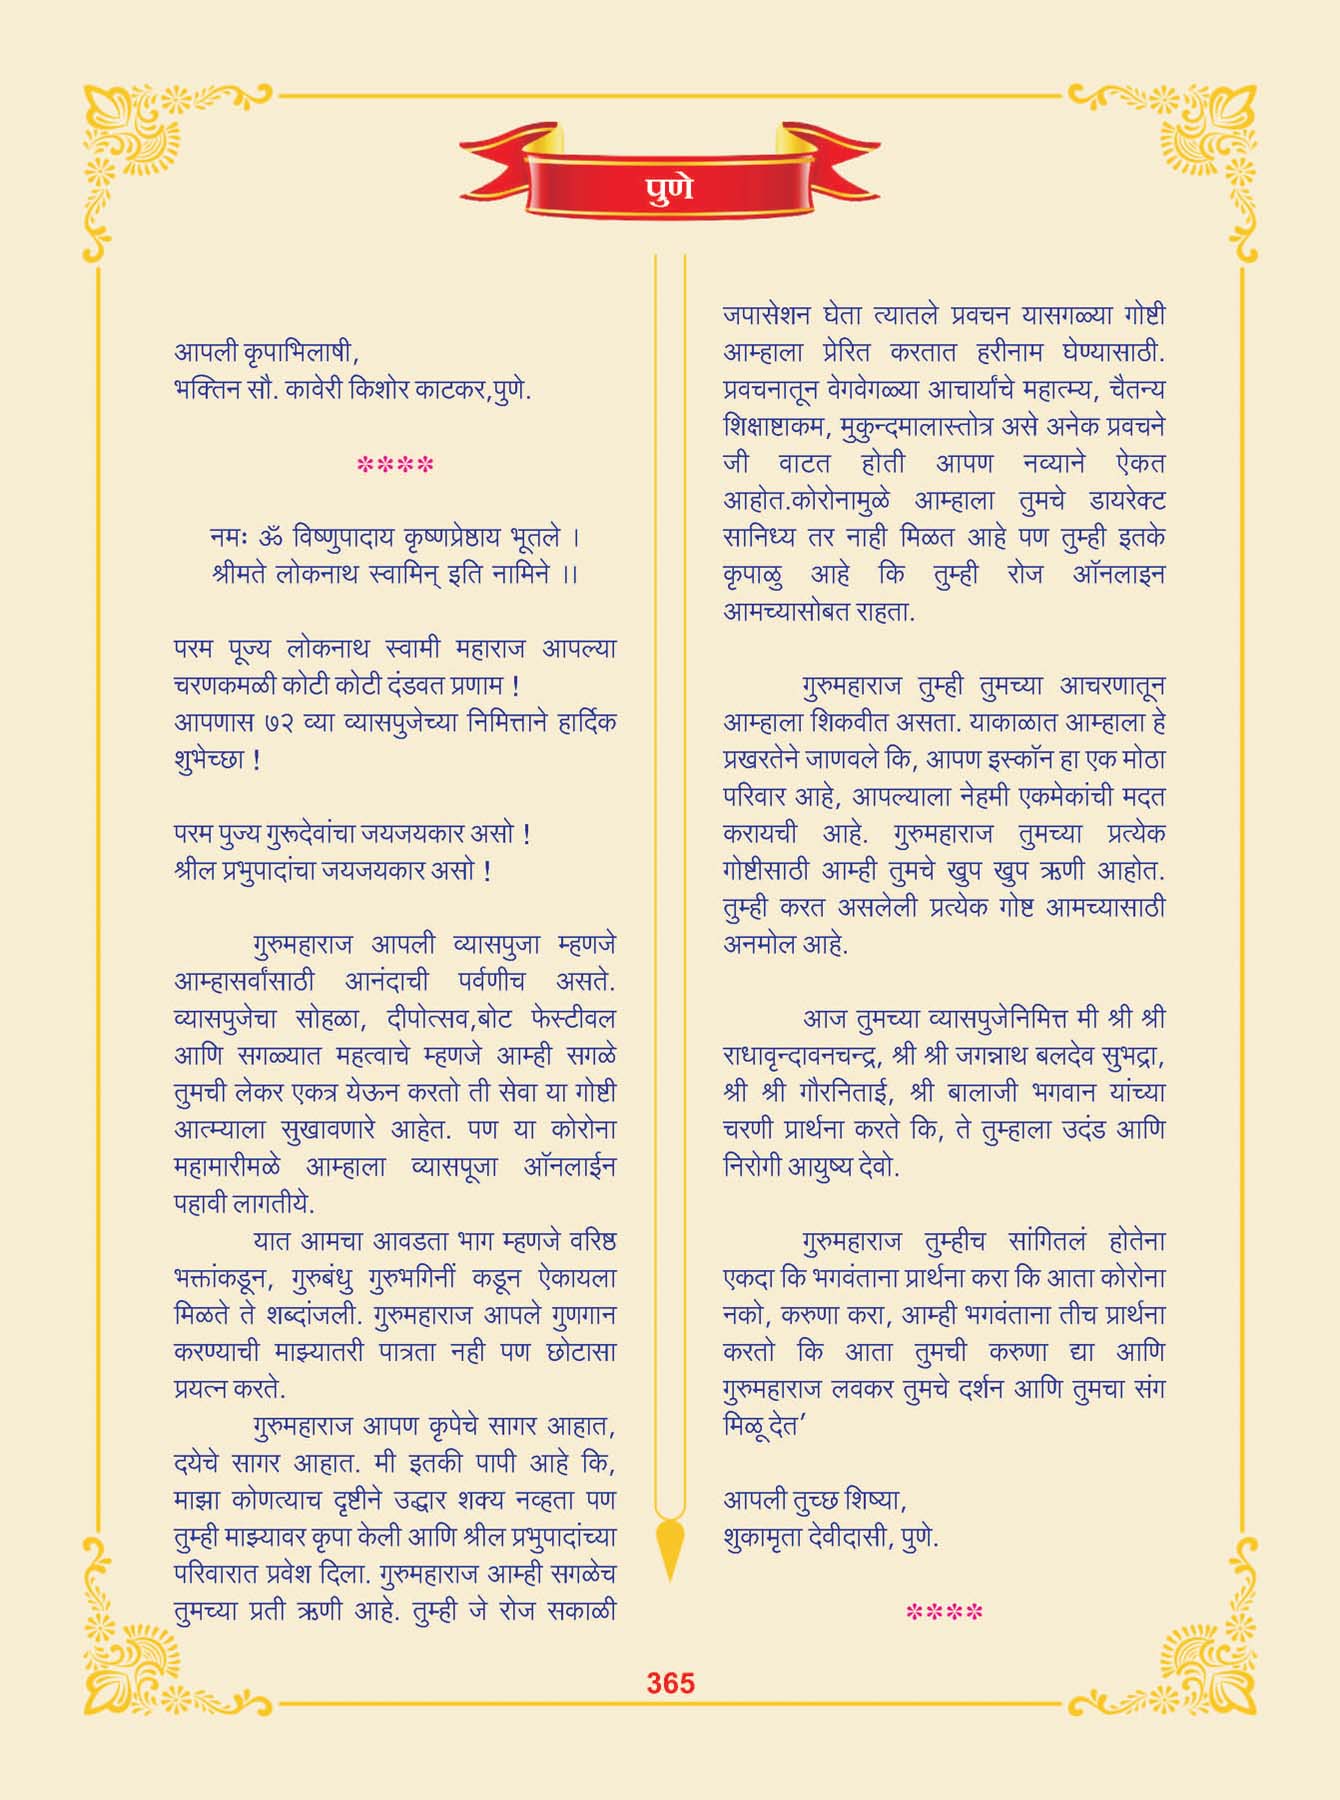 पुणे
आपली कृपाभिलाषी,
भक्तिन सौ. कावेरी किशोर काटकर,पुणे.
****
नमः ॐ विष्णुपादाय कृष्णप्रेष्ठाय भूतले ।
श्रीमते लोकनाथ स्वामिन् इति नामिने ।।
परम पूज्य लोकनाथ स्वामी महाराज आपल्या
चरणकमळी कोटी कोटी दंडवत प्रणाम !
आपणास ७२ व्या व्यासपुजेच्या निमित्ताने हार्दिक
शुभेच्छा !
परम पुज्य गुरूदेवांचा जयजयकार असो !
श्रील प्रभुपादांचा जयजयकार असो !
गुरुमहाराज आपली व्यासपुजा म्हणजे
आम्हासर्वांसाठी आनंदाची पर्वणीच असते.
व्यासपुजेचा सोहळा, दीपोत्सव,बोट फेस्टीवल
आणि सगळ्यात महत्वाचे म्हणजे आम्ही सगळे
तुमची लेकर एकत्र येऊन करतो ती सेवा या गोष्टी
आत्म्याला सुखावणारे आहेत. पण या कोरोना
महामारीमळे आम्हाला व्यासपूजा ऑनलाईन
पहावी लागतीये.
यात आमचा आवडता भाग म्हणजे वरिष्ठ
भक्तांकडून, गुरुबंधु गुरुभगिनीं कडून ऐकायला
मिळते ते शब्दांजली. गुरुमहाराज आपले गुणगान
करण्याची माझ्यातरी पात्रता नही पण छोटासा
प्रयत्न करते.
गुरुमहाराज आपण कृपेचे सागर आहात,
दयेचे सागर आहात. मी इतकी पापी आहे कि,
माझा कोणत्याच दृष्टीने उद्धार शक्य नव्हता पण
तुम्ही माझ्यावर कृपा केली आणि श्रील प्रभुपादांच्या
परिवारात प्रवेश दिला. गुरुमहाराज आम्ही सगळेच
तुमच्या प्रती ऋणी आहे. तुम्ही जे रोज सकाळी
जपासेशन घेता त्यातले प्रवचन यासगळ्या गोष्टी
आम्हाला प्रेरित करतात हरीनाम घेण्यासाठी.
प्रवचनातून वेगवेगळ्या आचार्यांचे महात्म्य, चैतन्य
शिक्षाष्टाकम, मुकुन्दमालास्तोत्र असे अनेक प्रवचने
जी वाटत होती आपण नव्याने ऐकत
आहोत.कोरोनामुळे आम्हाला तुमचे डायरेक्ट
सानिध्य तर नाही मिळत आहे पण तुम्ही इतके
कृपाळु आहे कि तुम्ही रोज ऑनलाइन
आमच्यासोबत राहता.
गुरुमहाराज तुम्ही तुमच्या आचरणातून
आम्हाला शिकवीत असता. याकाळात आम्हाला हे
प्रखरतेने जाणवले कि, आपण इस्कॉन हा एक मोठा
परिवार आहे, आपल्याला नेहमी एकमेकांची मदत
करायची आहे. गुरुमहाराज तुमच्या प्रत्येक
गोष्टीसाठी आम्ही तुमचे खुप खुप ऋणी आहोत.
तुम्ही करत असलेली प्रत्येक गोष्ट आमच्यासाठी
अनमोल आहे.
आज तुमच्या व्यासपुजेनिमित्त मी श्री श्री
राधावृन्दावनचन्द्र, श्री श्री जगन्नाथ बलदेव सुभद्रा,
श्री श्री गौरनिताई, श्री बालाजी भगवान यांच्या
चरणी प्रार्थना करते कि, ते तुम्हाला उदंड आणि
निरोगी आयुष्य देवो.
गुरुमहाराज तुम्हीच सांगितलं होतेना
एकदा कि भगवंताना प्रार्थना करा कि आता कोरोना
नको, करुणा करा, आम्ही भगवंताना तीच प्रार्थना
करतो कि आता तुमची करुणा द्या आणि
गुरुमहाराज लवकर तुमचे दर्शन आणि तुमचा संग
मिळू देत’
आपली तुच्छ शिष्या,
शुकामृता देवीदासी, पुणे.
****
365